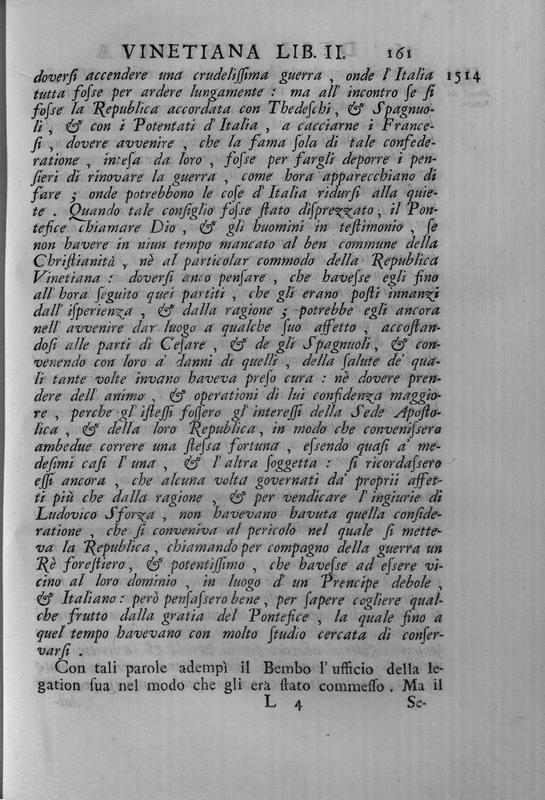 VINETIANA LIB. II. 161
doverſi accendere una crudeliſſima guerra , onde l'Italia 1514
tutta foſse per ardere lungamente : ma all' incontro ſe ſi
foſse la Republica accordata con Thedeſchi , & Spagnuo-
li , & con i Potentati d'Italia , a cacciarne i France-
ſi , dovere avvenire , che la fama ſola di tale confede-
ratione , inteſa da loro , foſse per fargli deporre i pen-
ſieri di rinovare la guerra , come hora apparecchiano di
fare ; onde potrebbono le coſe d'Italia ridurſi alla quie-
te . Quando tale conſiglio foſse ſtato diſprezzato , il Pon-
tefice chiamare Dio , & gli huomini in teſtimonio , ſe
non havere in niun tempo mancato al ben commune della
Chriſtianità , nè al particolar commodo della Republica
Vinetiana : doverſi anco penſare , che haveſse egli fino
all' hora ſeguito quei partiti , che gli erano poſti innanzi
dall' iſperienza , & dalla ragione ; potrebbe egli ancora
nell' avvenire dar luogo a qualche ſuo affetto , accoſtan-
doſi alle parti di Ceſare , & de gli Spagnuoli , & con-
venendo con loro a' danni di quelli , della ſalute de' qua-
li tante volte invano haveva preſo cura : nè dovere pren-
dere dell' animo , & operationi di lui confidenza maggio-
re , perche gl' iſteſſi foſſero gl' intereſſi della Sede Apoſto-
lica , & della loro Republica , in modo che conveniſsero
ambedue correre una ſteſsa fortuna , eſsendo quaſi a' me-
deſimi caſi l' una , & l' altra ſoggetta : ſi ricordaſsero
eſſi ancora , che alcuna volta governati da' proprii affet-
ti più che dalla ragione , & per vendicare l'ingiurie di
Ludovico Sforza , non havevano havuta quella conſide-
ratione , che ſi conveniva al pericolo nel quale ſi mette-
va la Republica , chiamando per compagno della guerra un
Rè foreſtiero , & potentiſſimo , che haveſse ad eſsere vi-
cino al loro dominio , in luogo d' un Prencipe debole ,
& Italiano : però penſaſsero bene , per ſapere cogliere qual-
che frutto dalla gratia del Pontefice , la quale fino a
quel tempo havevano con molto ſtudio cercata di conſer-
varſi .
Con tali parole adempì il Bembo l' ufficio della le-
gation ſua nel modo che gli era ſtato commeſſo . Ma il
L 4 Se-